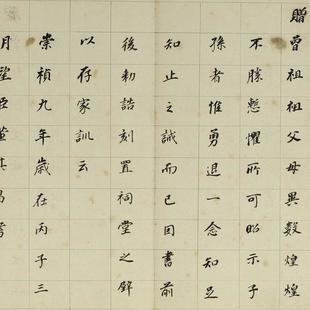 贈曾祖祖父母異數煌煌
不勝慙懼所可貽示子
孫者惟勇退一念知足
知止之誡而已因書前
後勅誥刻置祠堂之壁
以存家訓云
崇禎九年歲在丙子三
月望臣董其昌書